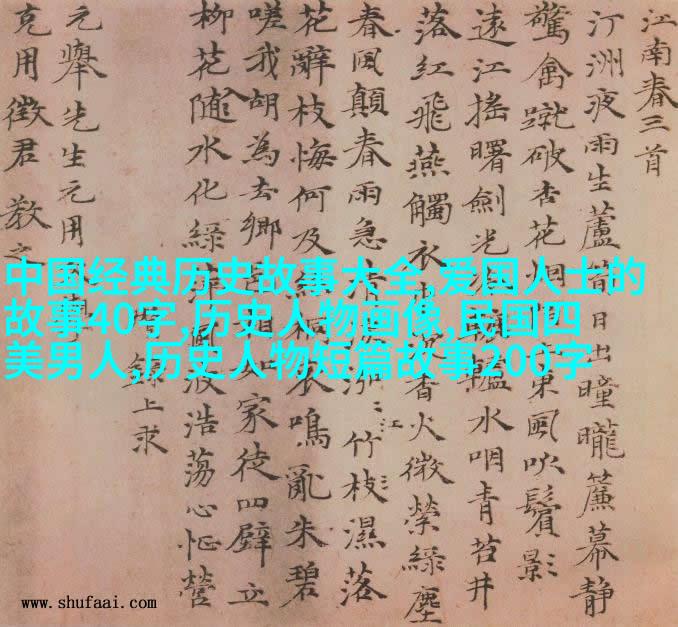 江南春三首
汀洲夜雨生蘆筍日出曈曨簾幕靜
驚禽蹴破杏花烟東風吹鬢影
遠江搖曙劍光轆轤水咽青苔井
落紅飛燕觸衣香火微縈綠塵
春風顛春雨急清泓〻江竹枝濕落
花辭枝悔何及絲桐哀鳴亂朱碧
嗟我胡為去鄉邑相如家徒四壁立
柳花隨水化綠萍風波浩蕩心怔營
錄上求
元舉先生元用
克用徵君教之
中国经典历史故事大全,爱国人士的
故事40字,历史人物画像,民国四
美男人,历史人物短篇故事200字
www.shufaai.com